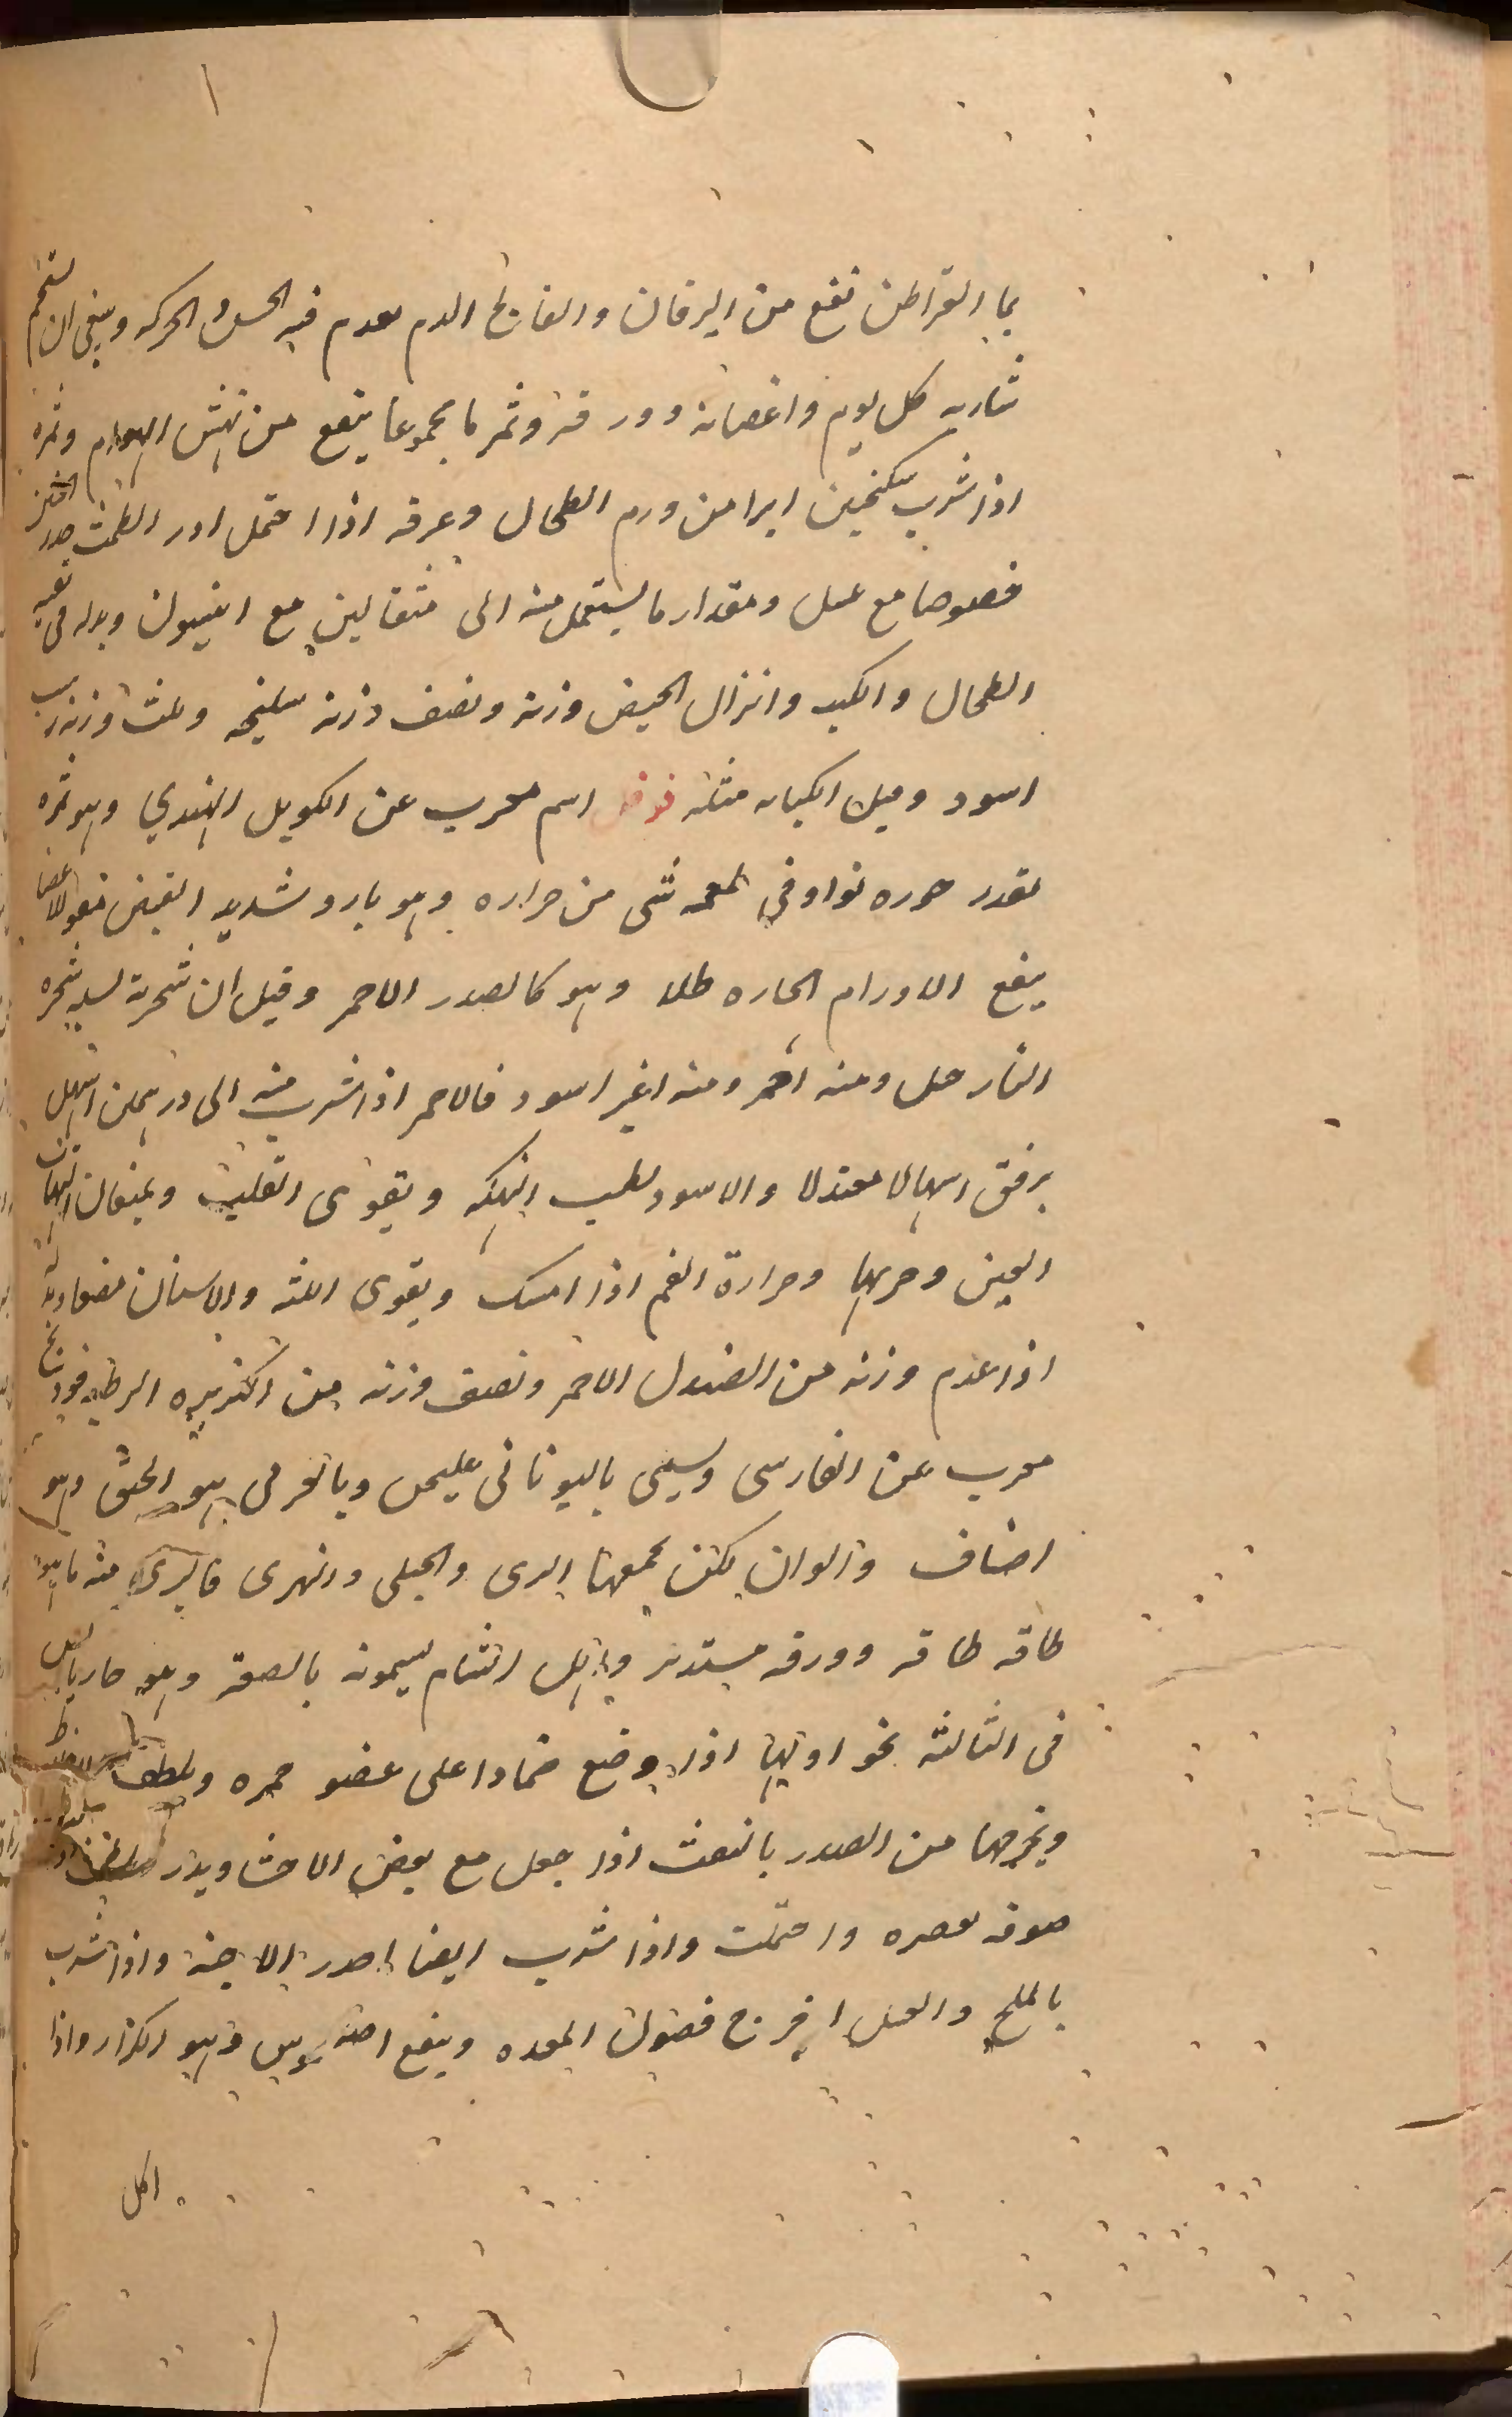 بما القراطن نفع من اليرقان والفالج الدم يعدم فيه الحس والحركه وينبغى ان يستحم
شاربه كل يوم واغصانه وورقه وثمرها مجموعا ينفع من نهش الهوام وثمره
اذا شرب بسكنجبين ابرا من ورم الطحال وعرقه اذا احتمل ادر الطمث
خصوصا مع عسل ومقدار ما يستعمل منه الى مثقالين مع وبدله فى
الطحال والكبد وانزال الحيض وزنه ونصف وزنه سليخه وثلث وزنه
اسود وقيل الكبابه مثله فوفل اسم معرب عن الكوبل الهندي وهو ثمره
بقدر جوزه بوا وفي طعمه شى من حراره وهو بارد شديد القبض مقو للاعضا
ينفع الاورام الحاره طلا وهو كالصدر الاحمر وقيل ان شجرته شجره
النارجيل ومنه احمر ومنه اغبر اسود فالاحمر اذا شرب منه الى درهمين اسهل
برفق اسهالا معتدلا والاسود يطيب النكهه ويقوى القلب ويمنعان التهاب
العين وجربها وحرارة الفم اذا امسك ويقوى اللثه والاسنان
اذا عدم وزنه من الصندل الاحمر ونصف وزنه من الكزبره الرطبه فودنج
معرب عن الفارسى ويسمى باليونانى وبالعربى هو الحبق وهو
اصناف والوان لكن يجمعها البرى والجبلى والنهرى فالبرى منه ما هو
طاقه طاقه وورقه مستدير واهل الشام يسمونه بالصعتر وهو حار يابس
فى الثالثه نحو اولها اذا وضع ضمادا على عضو حمره ويلطف
ويخرجها من الصدر بالنفث اذا جعل مع بعض الاحشا ويدر
صوفه بعصره واحتملت واذا شرب ايضا احدر الاجنه واذا شرب
بالملح والعسل اخرج فضول المعده وينفع وهو الكزاز واذا
اكل